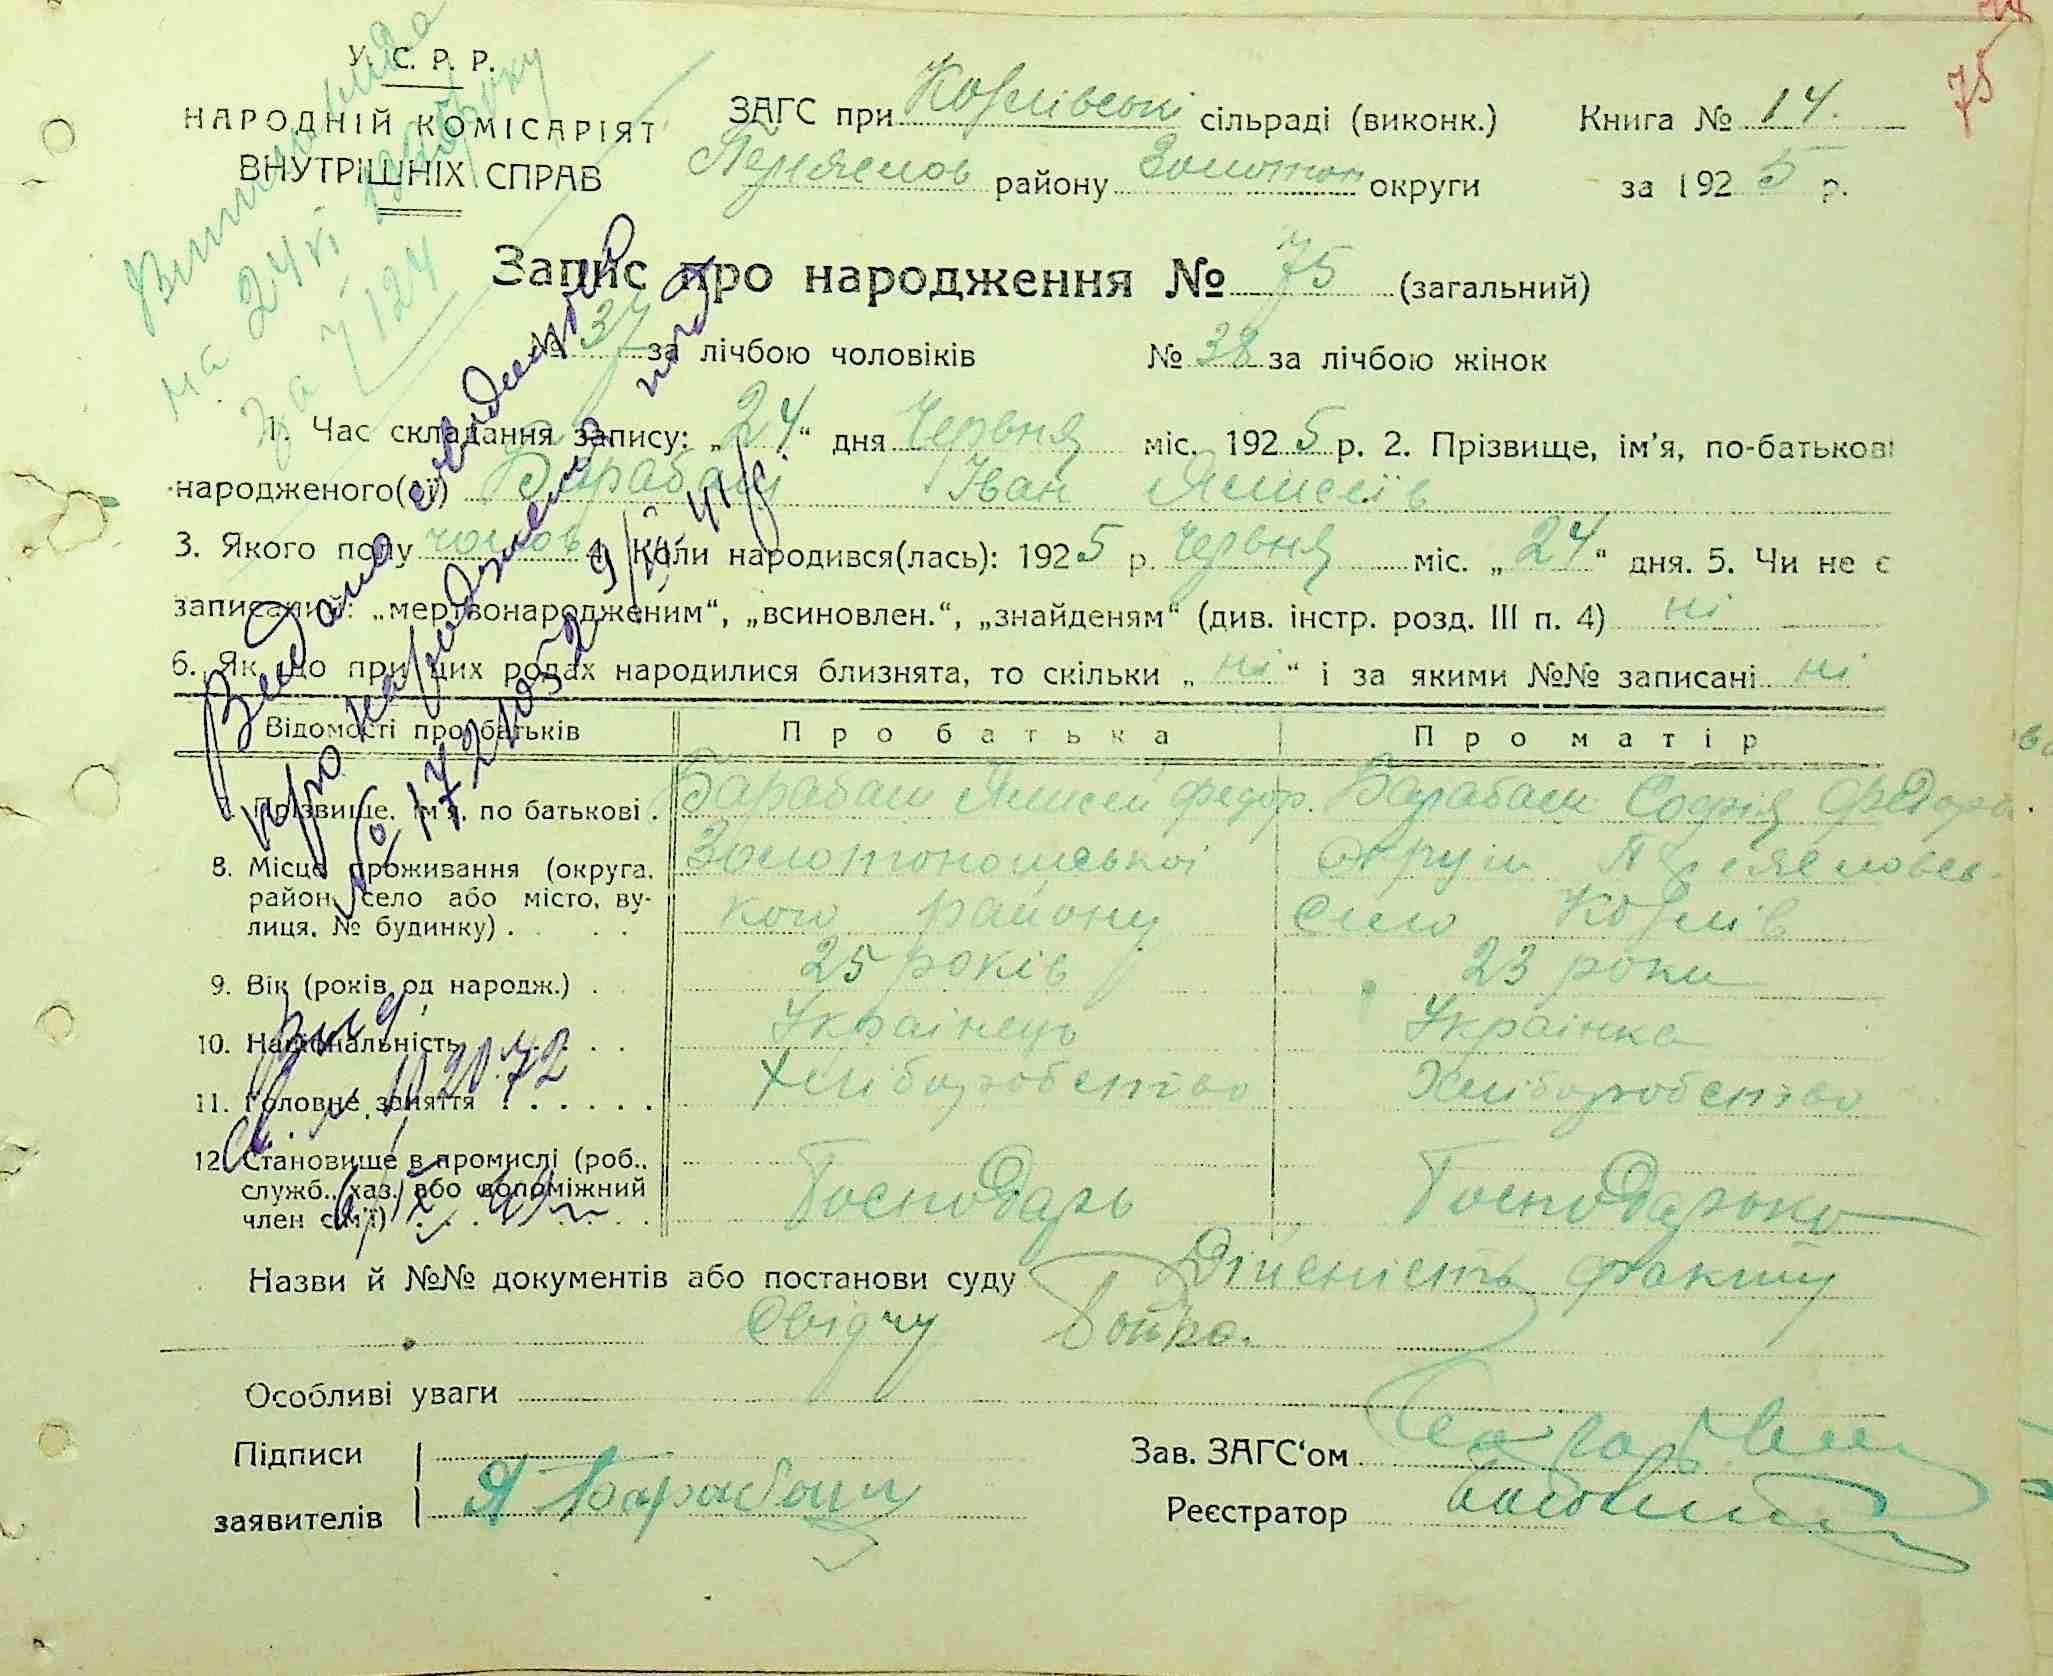 У. С. Р. Р.
НАРОДНІЙ КОМІСАРІЯТ
ВНУТРІШНІХ СПРАВ
ЗАГС при Корлівські сільраді (виконк.) Книга № 14.
Переяслов району Золотон округи за 1925 р.
75
Запис про народження № 75 (загальний)
№ 37 за лічбою чоловіків № 38 за лічбою жінок
1. Час складання запису: „24“ дня Червня міс. 1925 р. 2. Прізвище, ім’я, по-батькові
народженого(ої) Барабаш Іван Ялисеїв
3. Якого полу чолов 4. Коли народився(лась): 1925 р. Червня міс. „24“ дня. 5. Чи не є
записаний: „мертвонародженим“, „всиновлен.“, „знайденям“ (див. інстр. розд. III п. 4) ні
6. Якщо при цих родах народилися близнята, то скільки „ні“ і за якими №№ записані ні
Відомості про батьків Про батька Про матір
7. Прізвище, ім’я, по батькові . Барабаш Ялисей Федор. Барабаш Софія Федора.
8. Місце проживання (округа, Золотоношської Округи Переясловсь-
район, село або місто, ву-
лиця, № будинку) . кого району село Корлів
9. Вік (років од народж.) . 25 років 23 роки
10. Національність Українець Українка
11. Головне заняття . . . . . . Хліборобство Хліборобство
12. Становище в промислі (роб.,
служб., хаз. або допоміжний Господарь Господарька
член сім’ї)
Назви й №№ документів або постанови суду Дійсність факту
Свідчу
Особливі уваги
Підписи
заявителів Я Барабаш
Зав. ЗАГС‘ом
Реєстратор
на 24
за 7/24
Видано свидетель
про народження
№ 172105
Выд.